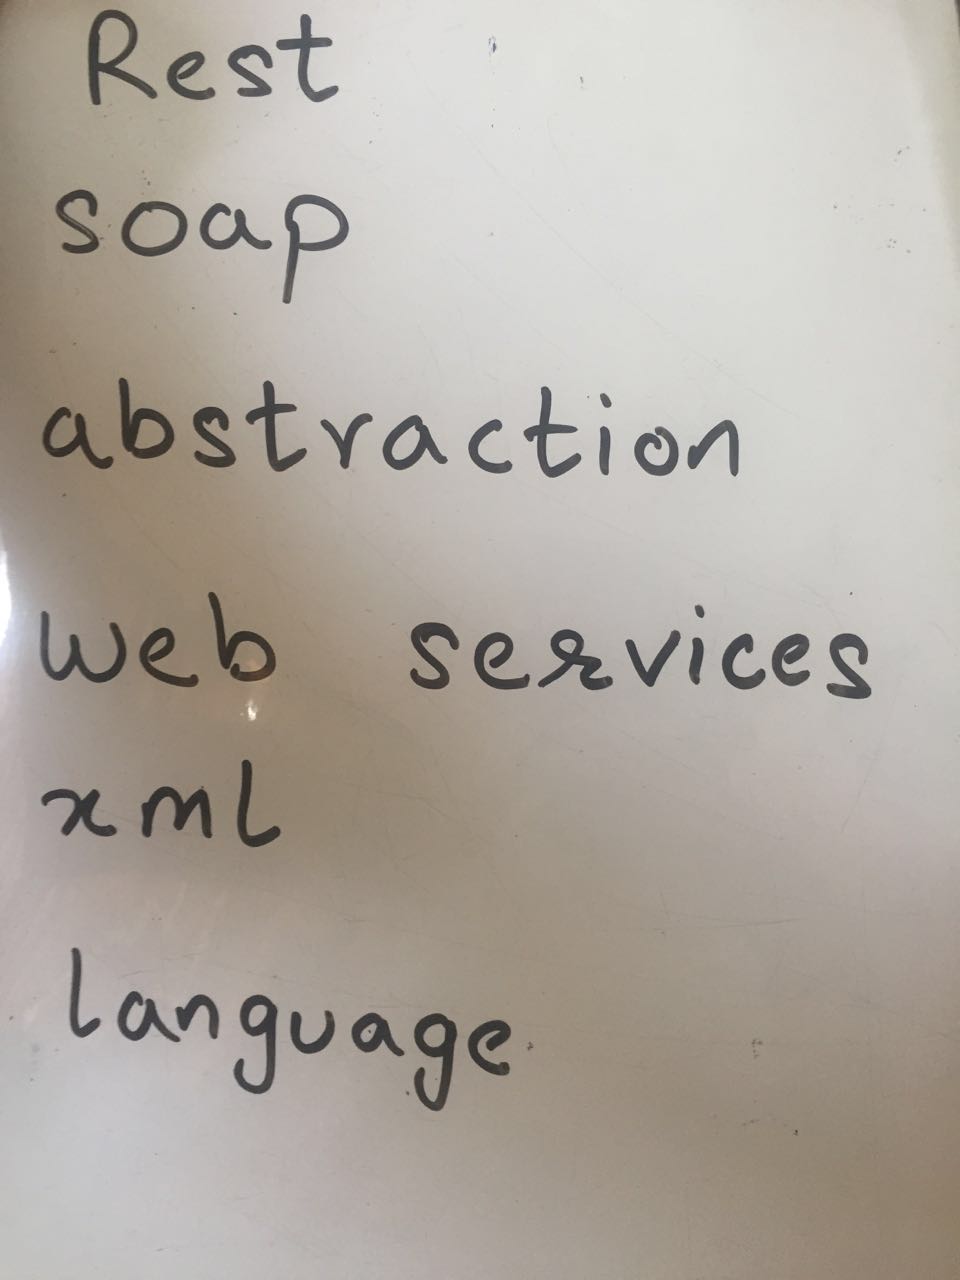 Rest
soap
abstraction
web services
xml
language